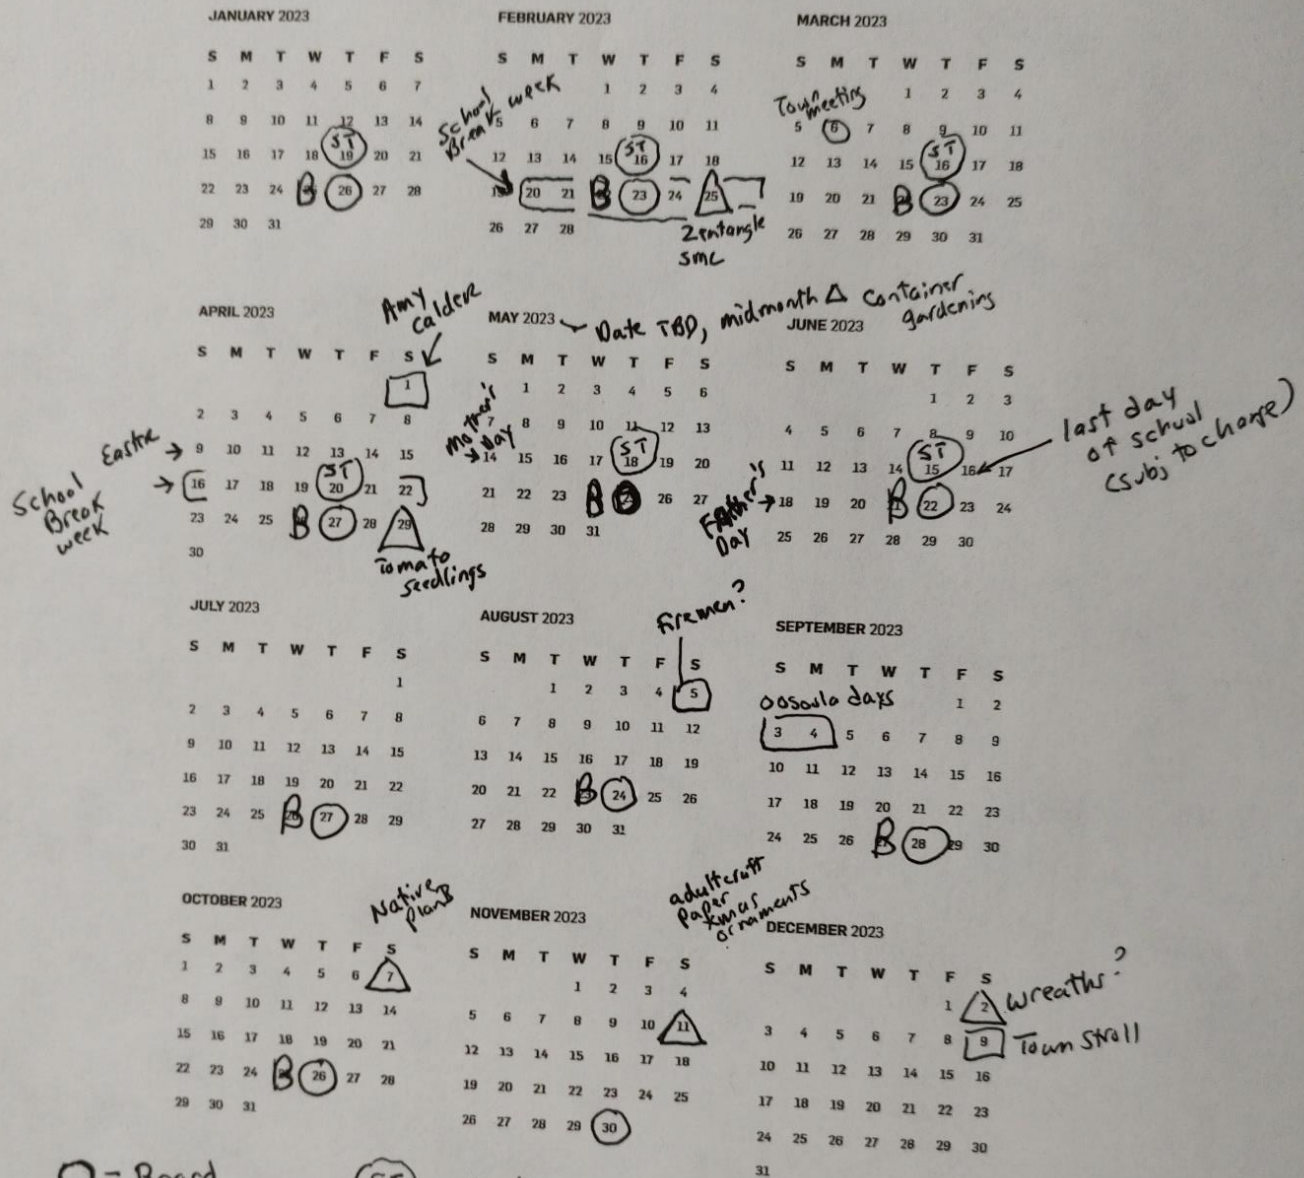 JANUARY 2023
S M T W T F S
1 2 3 4 5 6 7
8 9 10 11 12 13 14
ST
15 16 17 18 19 20 21
22 23 24 B 26 27 28
29 30 31
FEBRUARY 2023
School Break week
S M T W T F S
1 2 3 4
5 6 7 8 9 10 11
ST
12 13 14 15 16 17 18
19 20 21 B 23 24 25
26 27 28
Zentangle
SMC
MARCH 2023
S M T W T F S
Town meeting
1 2 3 4
5 6 7 8 9 10 11
ST
12 13 14 15 16 17 18
19 20 21 B 23 24 25
26 27 28 29 30 31
APRIL 2023
Amy
Calder
S M T W T F S
1
2 3 4 5 6 7 8
Easter
9 10 11 12 13 14 15
School
Break
week
ST
16 17 18 19 20 21 22
23 24 25 B 27 28 29
30
Tomato
seedlings
MAY 2023 Date TBD, midmonth Δ Container
gardening
S M T W T F S
1 2 3 4 5 6
7 8 9 10 11 12 13
Mother's
Day
ST
14 15 16 17 18 19 20
21 22 23 B 26 27
28 29 30 31
JUNE 2023
S M T W T F S
1 2 3
4 5 6 7 8 9 10
ST
11 12 13 14 15 16 17
last day
of school
(subj to change)
Father's
Day
18 19 20 B 22 23 24
25 26 27 28 29 30
JULY 2023
S M T W T F S
1
2 3 4 5 6 7 8
9 10 11 12 13 14 15
16 17 18 19 20 21 22
23 24 25 B 27 28 29
30 31
AUGUST 2023
Firemen?
S M T W T F S
1 2 3 4 5
6 7 8 9 10 11 12
13 14 15 16 17 18 19
20 21 22 B 24 25 26
27 28 29 30 31
SEPTEMBER 2023
S M T W T F S
days
1 2
3 4 5 6 7 8 9
10 11 12 13 14 15 16
17 18 19 20 21 22 23
24 25 26 B 28 29 30
OCTOBER 2023
Native
S M T W T F S
1 2 3 4 5 6 7
8 9 10 11 12 13 14
15 16 17 18 19 20 21
22 23 24 B 26 27 28
29 30 31
NOVEMBER 2023
adult craft
paper
xmas
ornaments
S M T W T F S
1 2 3 4
5 6 7 8 9 10 11
12 13 14 15 16 17 18
19 20 21 22 23 24 25
26 27 28 29 30
DECEMBER 2023
S M T W T F S
1 2 wreaths?
3 4 5 6 7 8 9 Town Stroll
10 11 12 13 14 15 16
17 18 19 20 21 22 23
24 25 26 27 28 29 30
31
= Board